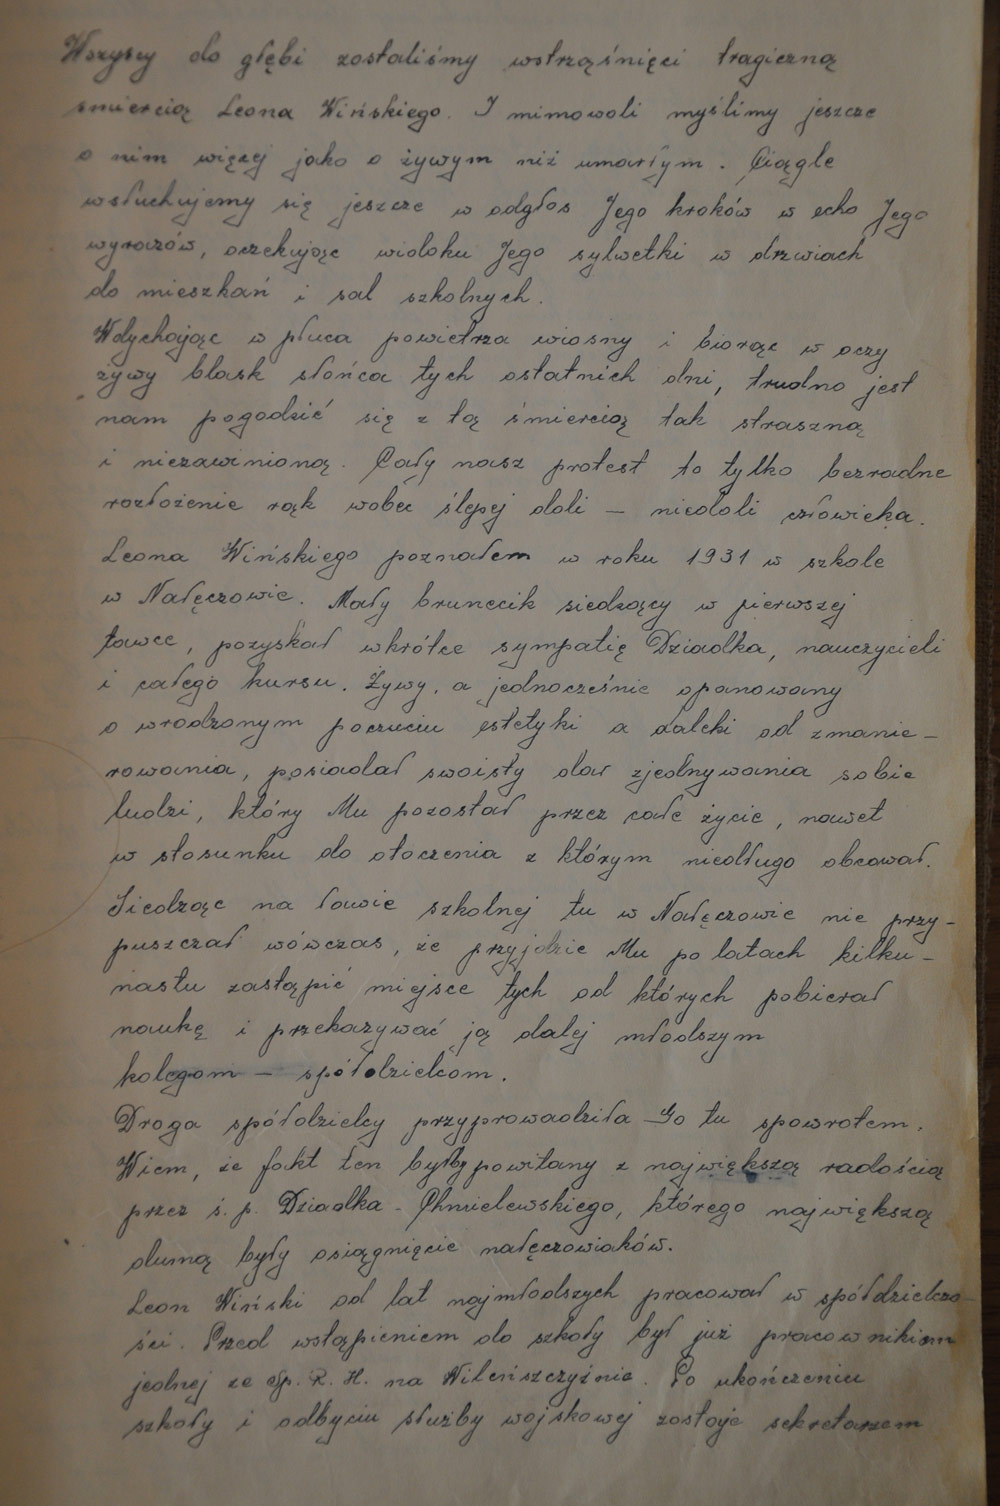 Wszyscy do głębi zostaliśmy wstrząśnięci tragiczną
śmiercią Leona Wińskiego. I mimowoli myślimy jeszcze
o nim więcej jako o żywym niż umarłym. Ciągle
wsłuchujemy się jeszcze w odgłos Jego kroków w echo Jego
wyrazów, oczekując widoku Jego sylwetki w drzwiach
do mieszkań i sal szkolnych.
Wdychając w płuca powietrza wiosny i biorąc w oczy
żywy blask słońca tych ostatnich dni, trudno jest
nam pogodzić się z tą śmiercią tak straszną
i niezawinioną. Cały nasz protest to tylko bezradne
rozłożenie rąk wobec ślepej doli – niedoli człowieka.
Leona Wińskiego poznałem w roku 1931 w szkole
w Nałęczowie. Mały brunecik siedzący w pierwszej
ławce, pozyskał wkrótce sympatię Dziadka, nauczycieli
i całego kursu. Żywy, a jednocześnie opanowany
o wrodzonym poczuciu estetyki a daleki od zmanie-
rowania, posiadał swoisty dar zjednywania sobie
ludzi, który Mu pozostał przez całe życie, nawet
w stosunku do otoczenia z którym niedługo obcował.
Siedząc na ławie szkolnej tu w Nałęczowie nie przy-
puszczał wówczas, że przyjdzie Mu po latach kilku-
nastu zastąpić miejsce tych od których pobierał
naukę i przekazywać ją dalej młodszym
kolegom – spółdzielcom.
Droga spółdzielcy przyprowadziła Go tu spowrotem.
Wiem, że fakt ten byłby powitany z największą radością
przez ś. p. Dziadka - Chmielewskiego, którego największą
dumą były osiągnięcie nałęczowiaków.
Leon Wiński od lat najmłodszych pracował w spółdzielczo-
ści. Przed wstąpieniem do szkoły był już pracownikiem
jednej ze Sp. R. H. na Wileńszczyźnie. Po ukończeniu
szkoły i odbyciu służby wojskowej zostaje sekretarzem